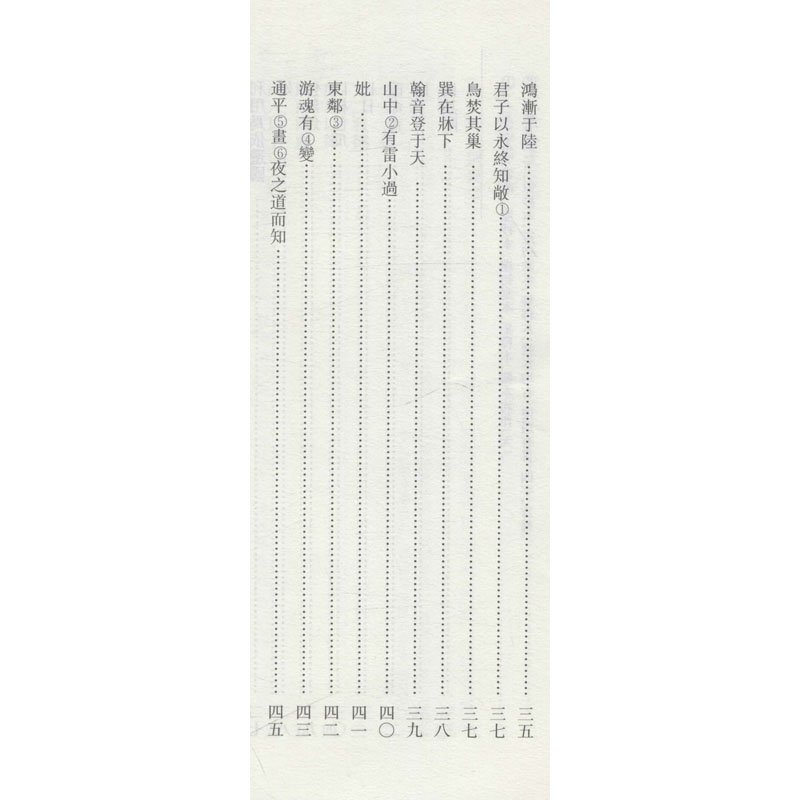 鴻漸于陸……三五
君子以永終知敝①……三七
鳥焚其巢……三七
巽在牀下……三八
翰音登于天……三九
山中②有雷小過……四〇
妣……四一
東鄰③……四二
游魂有④變……四三
通平⑤晝⑥夜之道而知……四五